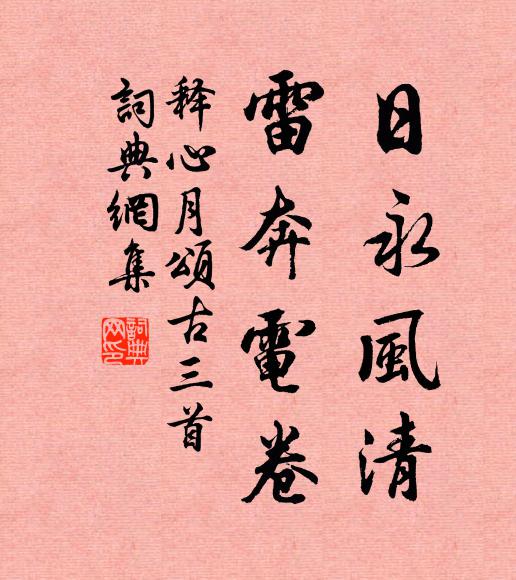 日永風清
雷奔電卷
释心月頌古三首
詞典網集
詞典網印